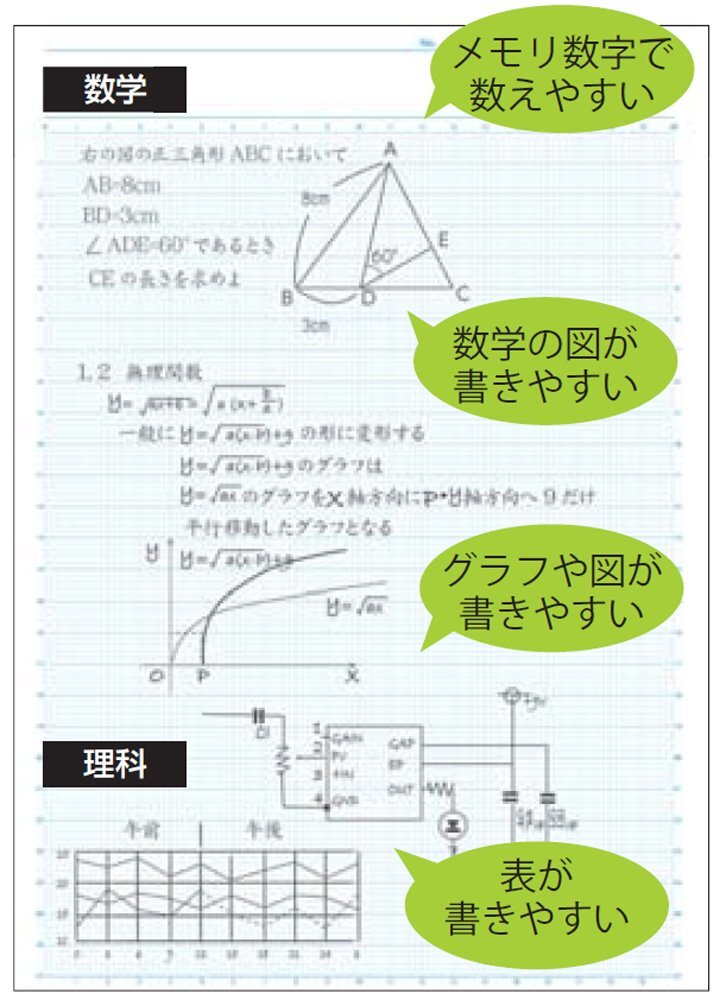 メモリ数字で
数えやすい
数学
右の図の正三角形ABCにおいて
AB=8cm
BD=3cm
∠ADE=60°であるとき
CEの長さを求めよ
A
8cm
60°
E
B
D
C
3cm
数学の図が
書きやすい
1.2 無理関数
一般に
の形に変形する
のグラフは
y=√ax のグラフをX軸方向にP・y軸方向へ9だけ
平行移動したグラフとなる
グラフや図が
書きやすい
y
y=√ax
O
P
X
理科
1
2
3
4
GAIN
OUT
午前
午後
表が
書きやすい